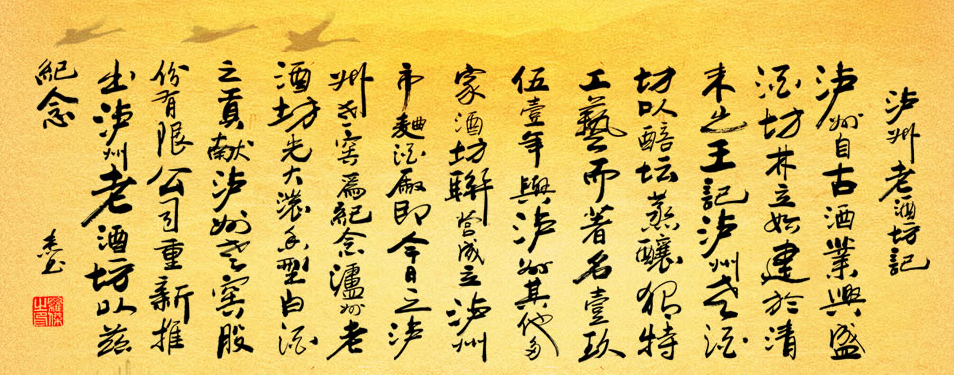 泸州老酒坊記
泸州自古酒業興盛
酒坊林立始建於清
末之王記泸州老酒
坊以醅坛蒸釀獨特
工藝而著名壹玖
伍壹年與泸州其他多
家酒坊聯营成立泸州
市麯酒厰即今日之泸
州老窖爲紀念瀘州老
酒坊光大濃香型白酒
之貢献泸州老窖股
份有限公司重新推
出泸州老酒坊以兹
紀念